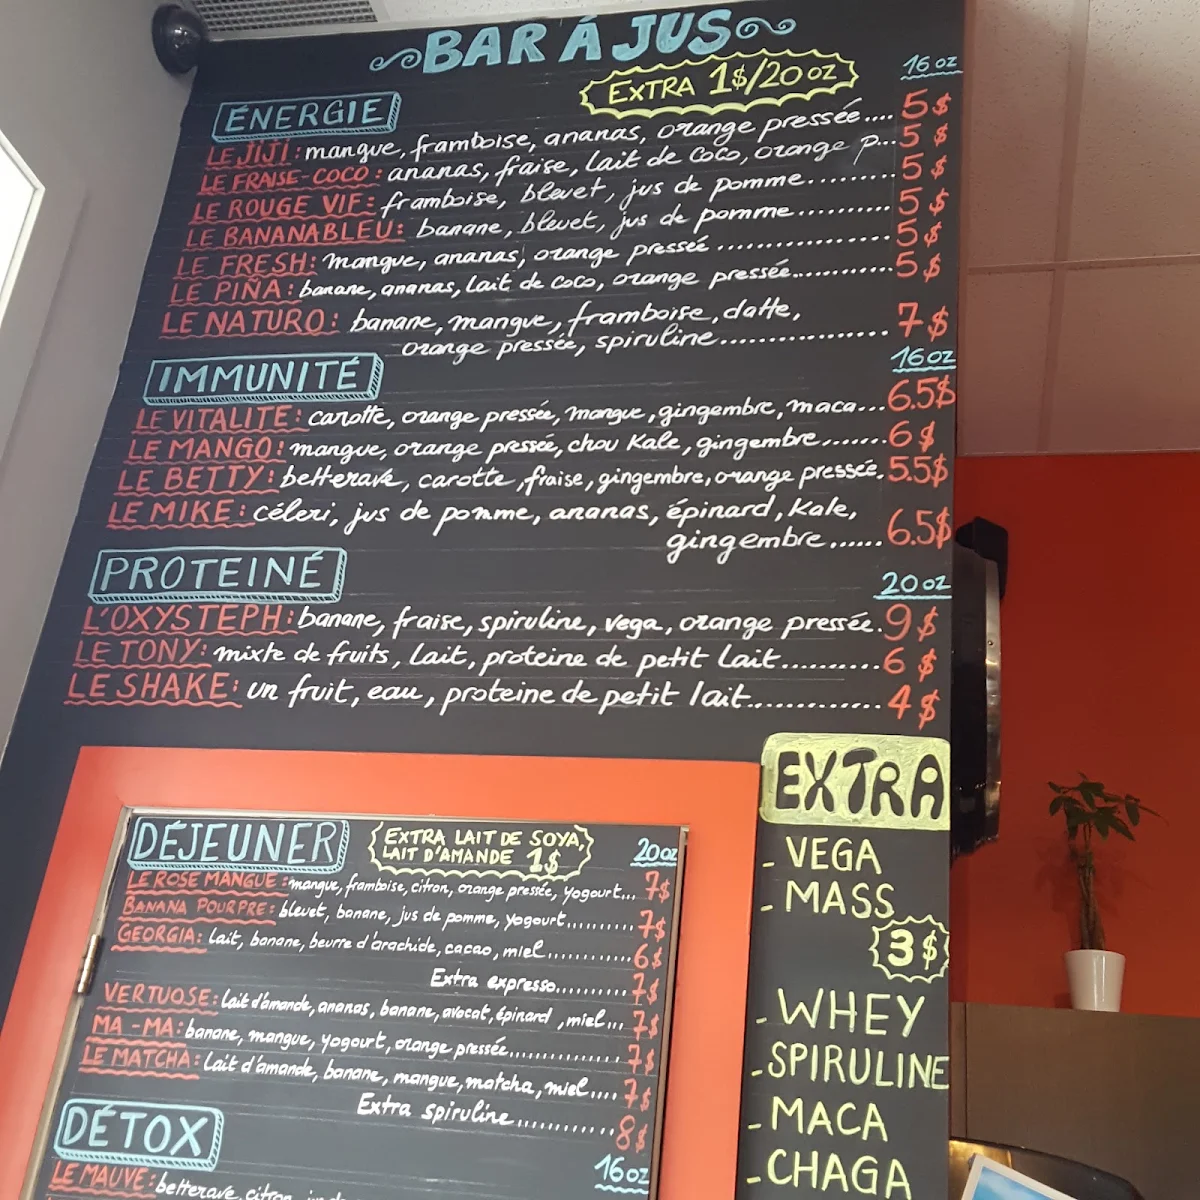 BAR À JUS
EXTRA 1$/20 oz
16 oz
ÉNERGIE
LE JIJI: mangue, framboise, ananas, orange pressée.... 5$
LE FRAISE-COCO: ananas, fraise, lait de coco, orange p... 5$
LE ROUGE VIF: framboise, bleuet, jus de pomme......... 5$
LE BANANABLEU: banane, bleuet, jus de pomme.......... 5$
LE FRESH: mangue, ananas, orange pressée .................. 5$
LE PIÑA: banane, ananas, lait de coco, orange pressée............ 5$
LE NATURO: banane, mangue, framboise, datte,
orange pressée, spiruline............... 7$
16 oz
IMMUNITÉ
LE VITALITE: carotte, orange pressée, mangue, gingembre, maca... 6.5$
LE MANGO: mangue, orange pressée, chou Kale, gingembre....... 6$
LE BETTY: betterave, carotte, fraise, gingembre, orange pressée. 5.5$
LE MIKE: céleri, jus de pomme, ananas, épinard, Kale,
gingembre...... 6.5$
PROTEINÉ
20 oz
L'OXYSTEPH: banane, fraise, spiruline, vega, orange pressée. 9$
LE TONY: mixte de fruits, lait, proteine de petit lait.......... 6$
LE SHAKE: un fruit, eau, proteine de petit lait............. 4$
DÉJEUNER
EXTRA LAIT DE SOYA,
LAIT D'AMANDE 1$
20oz
LE ROSE MANGUE: mangue, framboise, citron, orange pressée, yogourt... 7$
BANANA POURPRE: bleuet, banane, jus de pomme, yogourt.......... 7$
GEORGIA: lait, banane, beurre d'arachide, cacao, miel............ 6$
Extra expresso.......... 7$
VERTUOSE: lait d'amande, ananas, banane, avocat, épinard, miel... 7$
MA-MA: banane, mangue, yogourt, orange pressée................ 7$
LE MATCHA: lait d'amande, banane, mangue, matcha, miel.... 7$
Extra spiruline............. 8$
DÉTOX
16 oz
LE MAUVE: betterave, citron,
EXTRA
- VEGA
- MASS
3$
- WHEY
- SPIRULINE
- MACA
- CHAGA